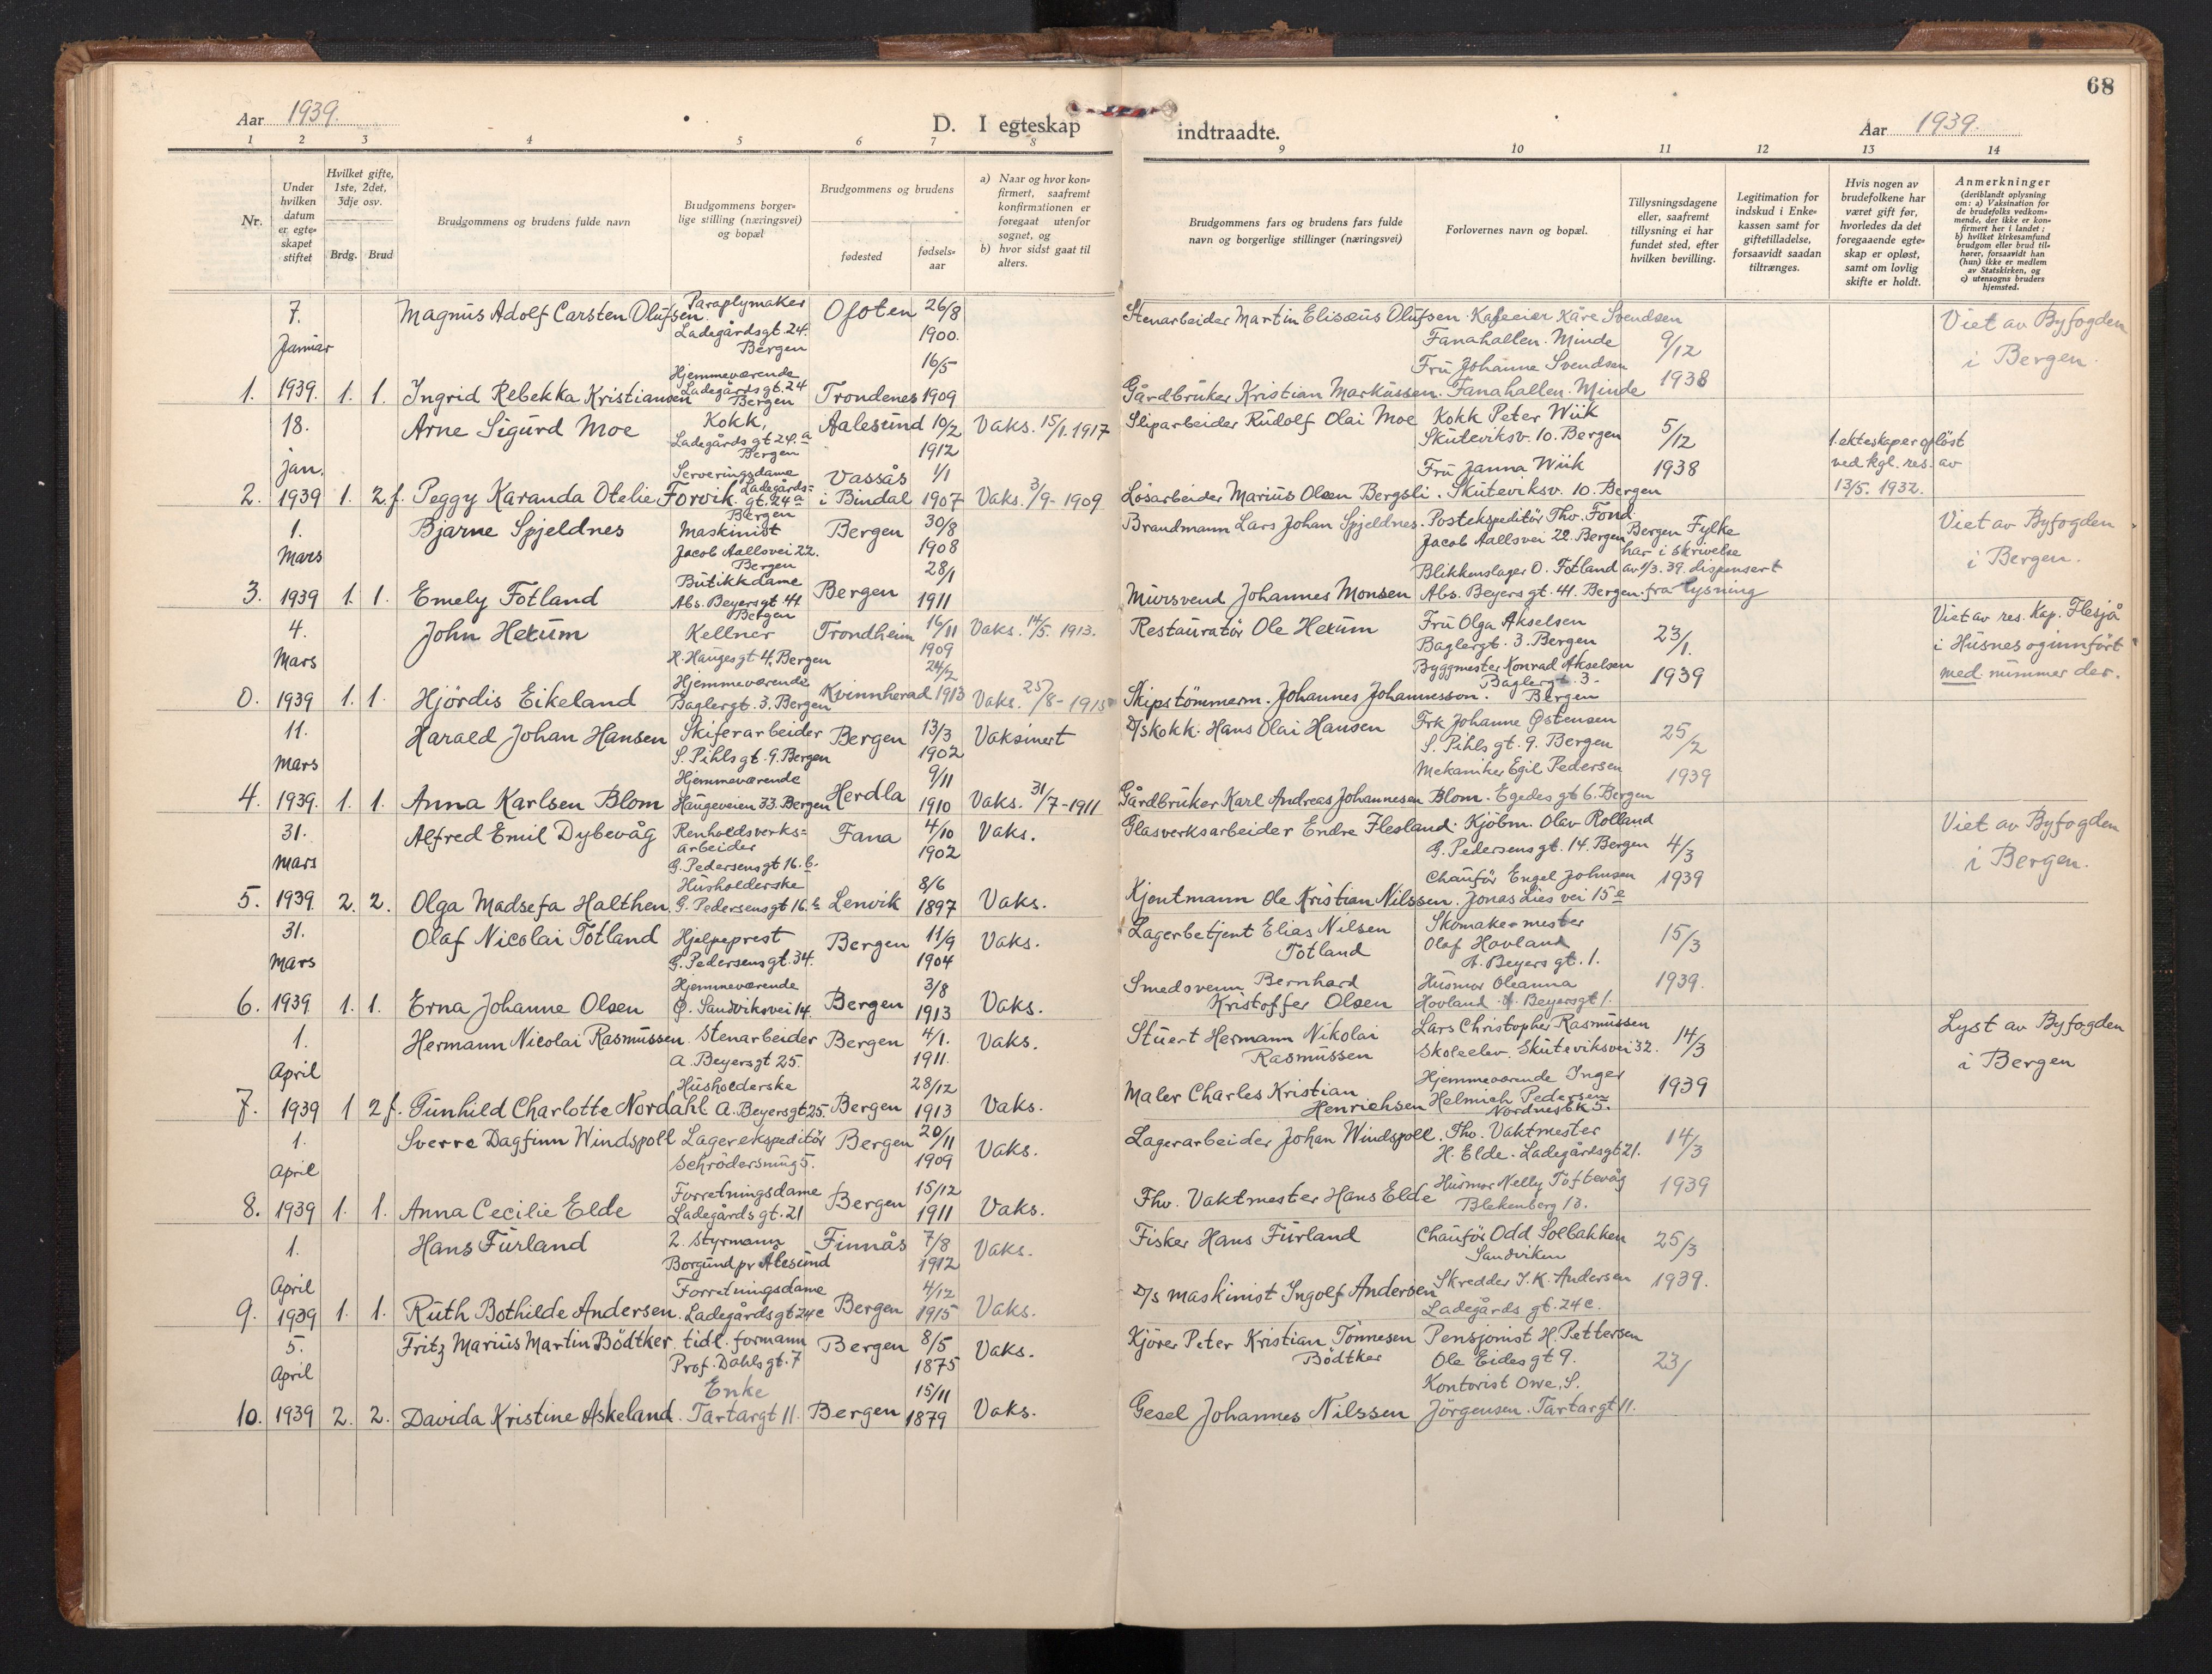 68
Aar 1939.
D. I egteskap indtraadte.
Aar 1939.
1 2 3 4 5 6 7 8 9 10 11 12 13 14
Nr.
Under hvilken datum er egteskapet stiftet
Hvilket gifte, 1ste, 2det, 3dje osv.
Brdg. Brud
Brudgommens og brudens fulde navn
Brudgommens borgerlige stilling (næringsvei) og bopæl
Brudgommens og brudens
fødested
fødselsaar
a) Naar og hvor konfirmert, saafremt konfirmationen er foregaat utenfor sognet, og
b) hvor sidst gaat til alters.
Brudgommens fars og brudens fars fulde navn og borgerlige stillinger (næringsvei)
Forlovernes navn og bopæl.
Tillysningsdagene eller, saafremt tillysning ei har fundet sted, efter hvilken bevilling.
Legitimation for indskud i Enkekassen samt for giftetilladelse, forsaavidt saadan tiltrænges.
Hvis nogen av brudefolkene har været gift før, hvorledes da det foregaaende egteskap er opløst, samt om lovlig skifte er holdt.
Anmerkninger
(deriblandt oplysning om: a) Vaksination for de brudefolks vedkommende, der ikke er konfirmert her i landet; b) hvilket kirkesamfund brudgom eller brud tilhører, forsaavidt han (hun) ikke er medlem av Statskirken, og c) utensogns bruders hjemsted.
1. 7. Januar 1939. 1. 1.
Magnus Adolf Carsten Olufsen. Paraplymaker Ladegårdsgt. 24. Bergen Ofoten 26/8 1900.
Stenarbeider Martin Elisæus Olufsen. Kafeeier Kåre Svendsen Fanahallen. Minde 9/12 1938
Viet av Byfogden i Bergen.
Ingrid Rebekka Kristiansen Hjemmeværende Ladegårdsgt. 24 Bergen Trondenes 16/5 1909
Gårdbruker Kristian Markussen. Fru Johanne Svendsen Fanahallen. Minde
2. 18. jan. 1939 1. 2 f.
Arne Sigurd Moe Kokk, Ladegårdsgt 24.a Bergen Aalesund 10/2 1912 Vaks. 15/1. 1917
Sliparbeider Rudolf Olai Moe Kokk Peter Wiik Skuteviksv. 10. Bergen 5/12 1938
1. ekteskap er opløst ved kgl. res. av 13/5. 1932.
Peggy Karanda Otelie Forvik. Serveringsdame Ladegårds= gt. 24a Bergen Vassås i Bindal 1/1 1907 Vaks. 3/9 - 1909
Løsarbeider Marius Olsen Bergsli. Fru Janna Wiik Skuteviksv. 10. Bergen
3. 1. Mars 1939 1. 1.
Bjarne Spjeldnes Maskinist Jacob Aallsvei 22. Bergen Bergen 30/8 1908
Brandmann Lars Johan Spjeldnes. Postekspeditör Thv. Fond Jacob Aallsvei 22. Bergen
Bergen Fylke har i skrivelse av 1/3. 39. dispensert fra lysning
Viet av Byfogden i Bergen.
Emely Fotland Butikkdame Abs. Beyersgt 44 Bergen Bergen 28/1 1911
Mursvend Johannes Monsen Blikkenslager O. Fotland Abs. Beyersgt. 41. Bergen.
0. 4. Mars 1939 1. 1.
John Hexum Kellner H. Haugesgt 4, Bergen Trondheim 16/11 1909 Vaks. 14/5. 1913.
Restauratør Ole Hexum Fru Olga Akselsen Baglergt. 3. Bergen 23/1. 1939
Viet av res. Kap. Flesjå i Husnes og innført med nummer der.
Hjördis Eikeland Hjemmeværende Baglergt. 3. Bergen Kvinnherad 24/2 1913 Vaks. 25/8 - 1915
Skipstømmerm. Johannes Johannesson. Byggmester Konrad Akselsen Baglergt. 3. Bergen
4. 11. Mars 1939. 1. 1.
Harald Johan Hansen Skiferarbeider S. Pihlsgt. 9. Bergen Bergen 13/3 1902 Vaksinert
D/skokk. Hans Olai Hansen Frk Johanne Østensen S. Pihlsgt. 9. Bergen 25/2 1939
Anna Karlsen Blom Hjemmeværende Haugeveien 33. Bergen Herdla 9/11 1910 Vaks. 31/7 - 1911
Gårdbruker Karl Andreas Johannesen Blom. Mekaniker Egil Pedersen Egedes gt 6. Bergen
5. 31. Mars 1939 2. 2.
Alfred Emil Dybevåg Renholdsverks= arbeider G. Pedersensgt 16. b. Fana 4/10 1902 Vaks.
Glasverksarbeider Endre Flesland. Kjöbm. Olav Rolland G. Pedersensgt. 14. Bergen 4/3 1939
Viet av Byfogden i Bergen.
Olga Madsefa Halthen. Husholderske G. Pedersensgt 16. b Lenvik 8/6 1897 Vaks.
Kjentmann Ole Kristian Nilssen. Chauför Engel Johnsen Jonas Lies vei 15 e
6. 31. Mars 1939 1. 1.
Olaf Nicolai Totland Hjelpeprest G. Pedersensgt. 34. Bergen 11/9 1904 Vaks.
Lagerbetjent Elias Nilsen Totland Skomakermester Olaf Hovland A. Beyersgt. 1. 15/3 1939.
Erna Johanne Olsen Hjemmeværende Ø. Sandviksvei 14. Bergen 3/8 1913 Vaks.
Smedsvenn Bernhard Kristoffer Olsen Husmor Oleanna Hovland. A. Beyersgt 1.
7. 1. April 1939 1 2 f.
Hermann Nicolai Rasmussen. Stenarbeider A. Beyersgt 25. Bergen 4/1. 1911. Vaks.
Stuert Hermann Nikolai Rasmussen Lars Christopher Rasmussen Skoleelev. Skuteviksvei 32. 14/3 1939
Lyst av Byfogden i Bergen
Gunhild Charlotte Nordahl Husholderske A. Beyersgt 25. Bergen 28/12 1913 Vaks.
Maler Charles Kristian Henrichsen Hjemmeværende Inger Helmich Pedersen Nordnesbk 5.
8. 1. April 1939 1. 1.
Sverre Dagfinn Windspoll Lagerekspeditör Schrödersmug 5. Bergen 20/11 1909 Vaks.
Lagerarbeider Johan Windspoll. Fhv. Vaktmester H. Elde. Ladegårdsgt 21. 14/3 1939
Anna Cecilie Elde Forretningsdame Ladegårdsgt. 21 Bergen 15/12 1911 Vaks.
Fhv. Vaktmester Hans Elde Husmor Nelly Toftevåg Blekenberg 13.
9. 1. April 1939 1. 1.
Hans Furland 2. Styrmann Borgund pr Ålesund Finnås 7/8 1912 Vaks.
Fisker Hans Furland Chauför Odd Solbakken Sandviken 25/3 1939.
Ruth Bothilde Andersen. Forretningsdame Ladegårdsgt 24c Bergen 4/12 1915 Vaks.
D/s maskinist Ingolf Andersen Skredder I. K. Andersen Ladegårds gt. 24c.
10. 5. April 1939 2. 2.
Fritz Marius Martin Bödtker. tidl. formann Prof. Dahlsgt. 7 Bergen 8/5 1875 Vaks.
Kjörer Peter Kristian Tönnesen Bödtker Pensjonist H. Pettersen Ole Eidesgt 9. 23/
Davida Kristine Askeland. Enke Tartargt 11. Bergen 15/11 1879 Vaks.
Gesel Johannes Nilssen Kontorist Owe. S. Jörgensen. Tartargt 11.